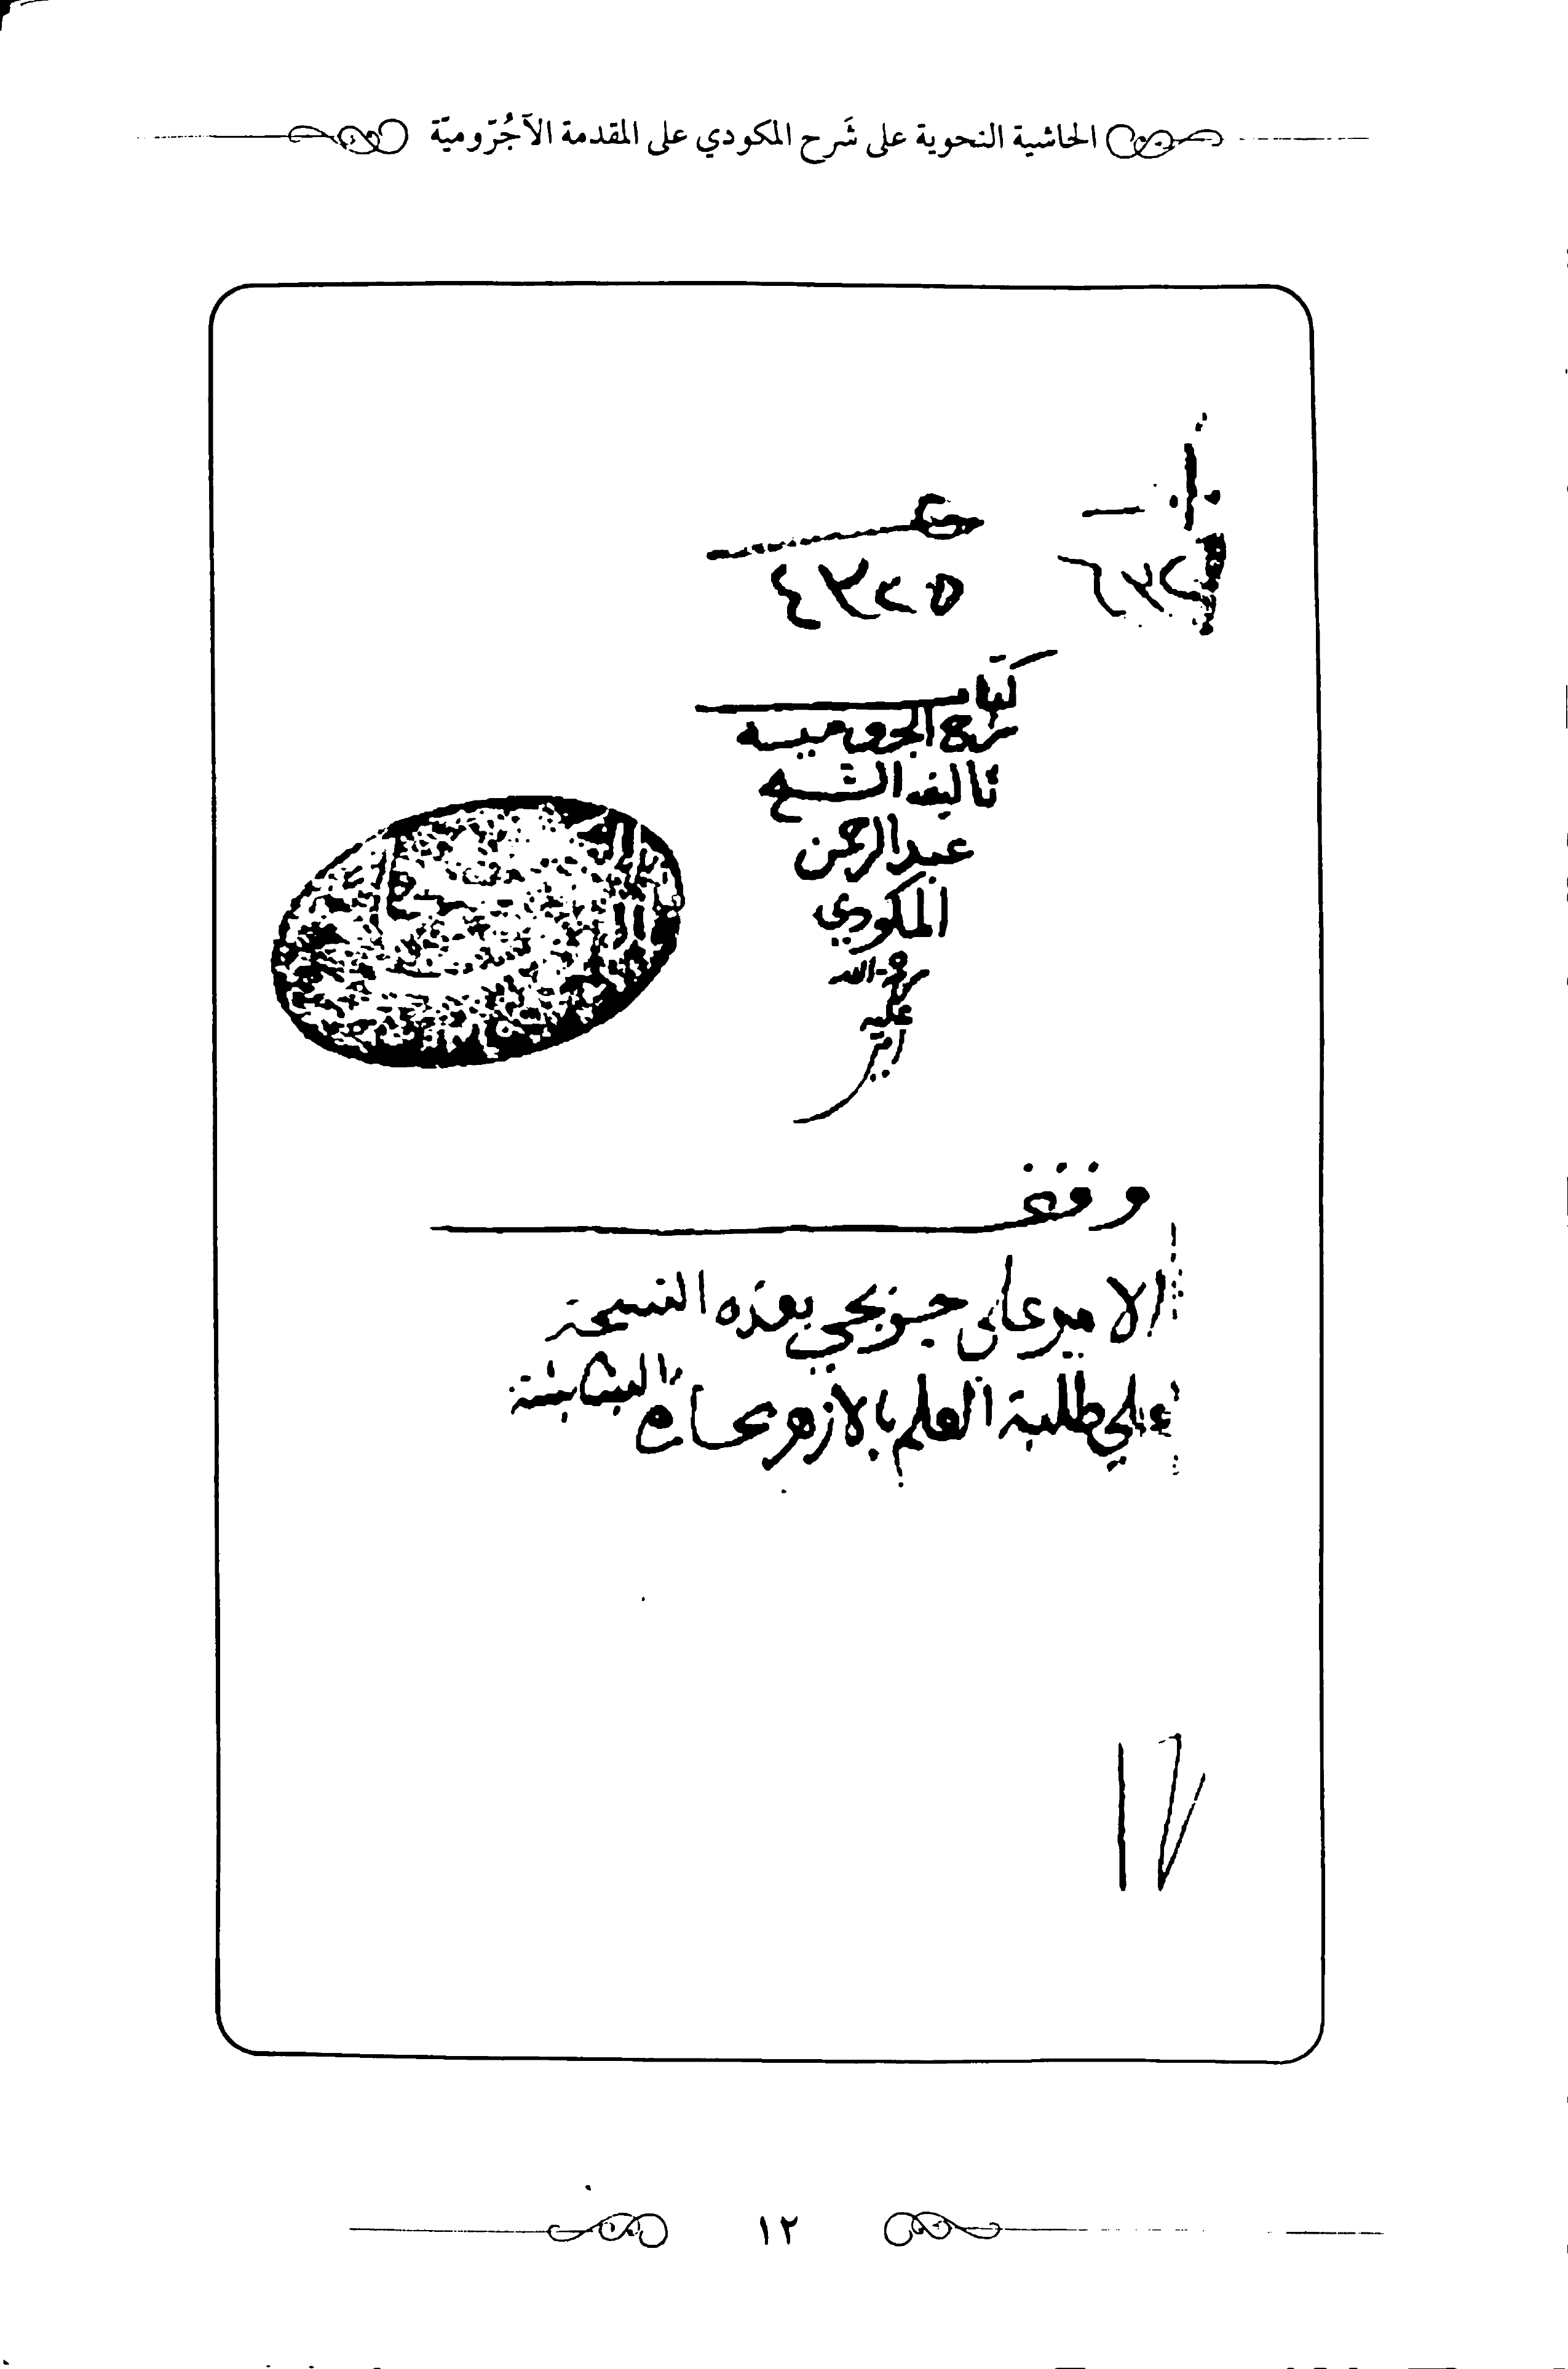 الحاشية النحوية على شَرح المكودي على المقدمة الآجُرّوميّة
٤٣٢٥
كتاب
شرح الجروميــة
تاليف الشيخ
عبد الرحمن
المكودي
رحمة الله
عليه
وقف
الامير علي جوبجي بهذه النسخة
على طلبة العلم بالازهر بحارة البشابشة
١٢